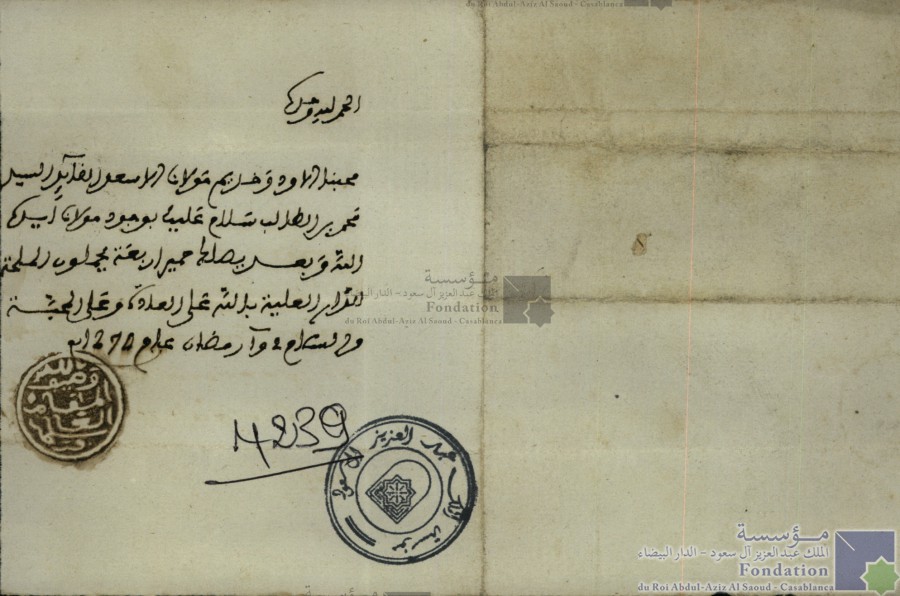 du Roi Abdul-Aziz Al Saoud - Casablanca
الحمد لله وحده
محبنا الاود وخديم مولانا الاسعد القايد السيد
محمد بن الطالب سلام عليك بوجود مولانا ايده
الله وبعد يصلك حمير اربعة يحملون الملحة
للدار العلية بالله على العادة وعلى المحبة
والسلام رمضان عام 1272
مؤسسة
الملك عبد العزيز آل سعود - الدار البيضاء
Fondation
du Roi Abdul-Aziz Al Saoud - Casablanca
4239
عبد العزيز آل سعود
مؤسسة الملك
مؤسسة
الملك عبد العزيز آل سعود - الدار البيضاء
Fondation
du Roi Abdul-Aziz Al Saoud - Casablanca